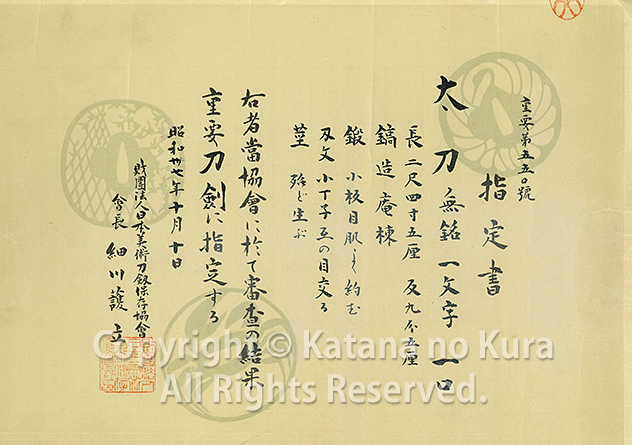 重要第五五〇號
指定書
太刀 無銘 一文字 一口
長 二尺四寸五厘 反九分五厘
鎬造庵棟
鍛 小板目肌よく約む
刃文 小丁子互の目交る
茎 殆ど生ぶ
右者當協會に於て審査の結果
重要刀剣に指定する
昭和卅七年十月十日
財團法人日本美術刀剣保存協會
會長 細川護立
Copyright © Katana no Kura
All Rights Reserved.